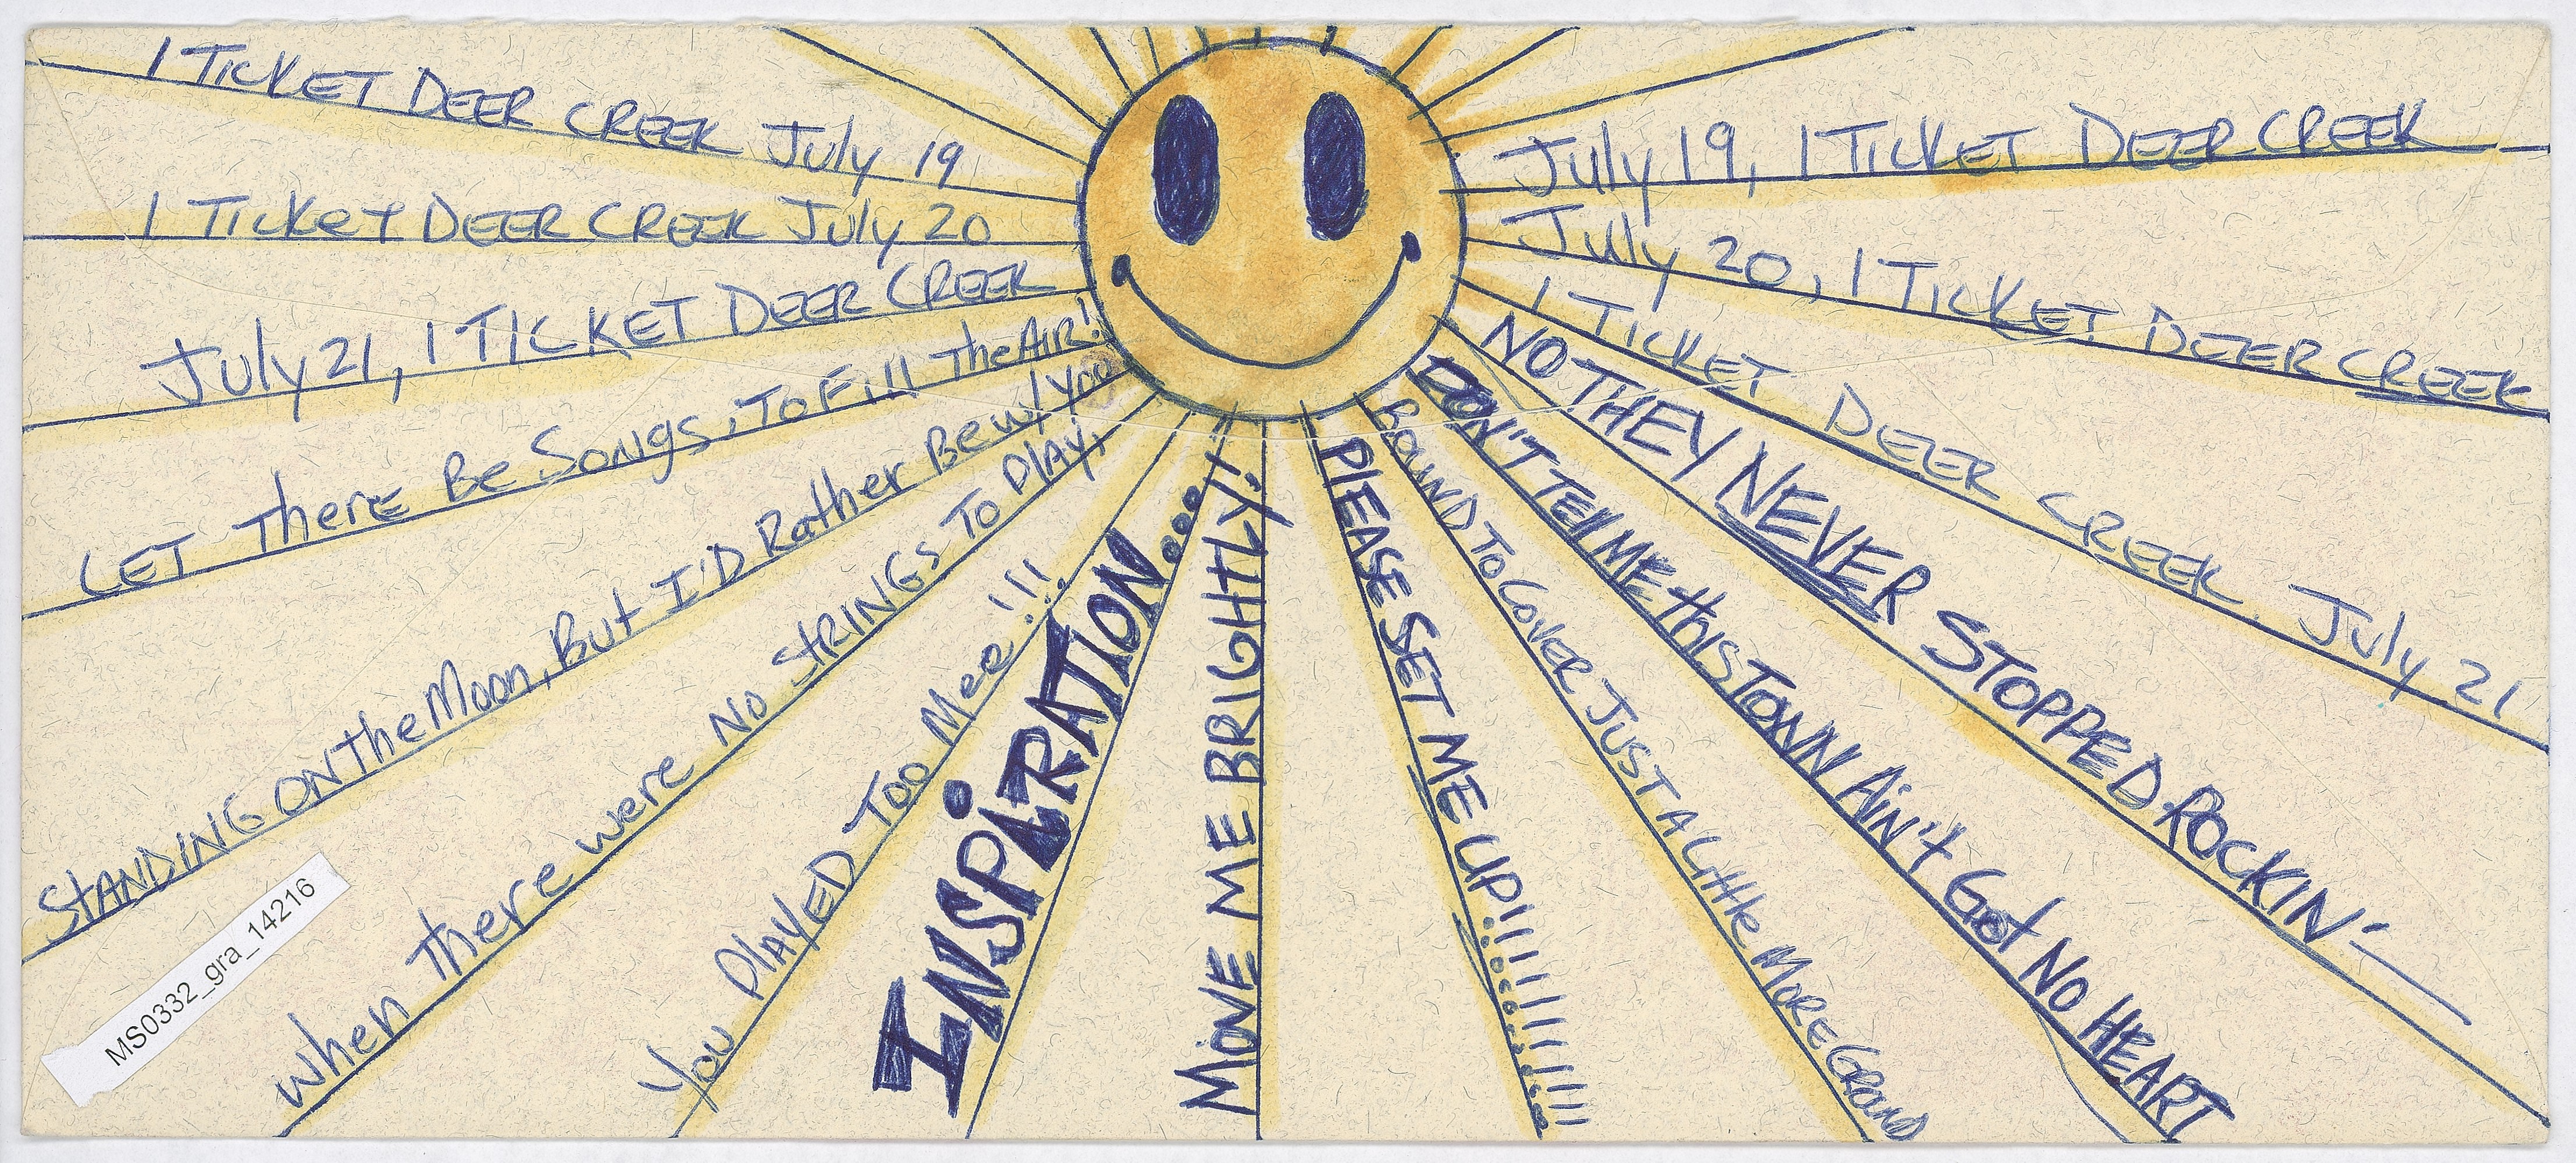 1 TICKET DEER CREEK July 19
1 TICKeT DEER CREEK July 20
July 21, 1 TICKET DEER CREEK
LET There Be Songs, To Fill The AIR!
STANDING ON The Moon, But I'D Rather Be w/ you
When There were No STRINGS To Play,
You PlAyED Too Mee!!!
INSPiRATION....
MOVE ME BRIGHTLY!
PlEASE SET ME UP!!!!!!!!!!!
BOUND To COVER JUST A Little MORE GROUND
DON'T TEll ME this TOWN AiN't Got NO HEART
NO THEY NEVER STOPPED ROCKIN'—
1 TICKET DEER CREEK July 21
July 20, 1 TICKET DEER CREEK
July 19, 1 TICKET DEER CREEK
MS0332_gra_14216